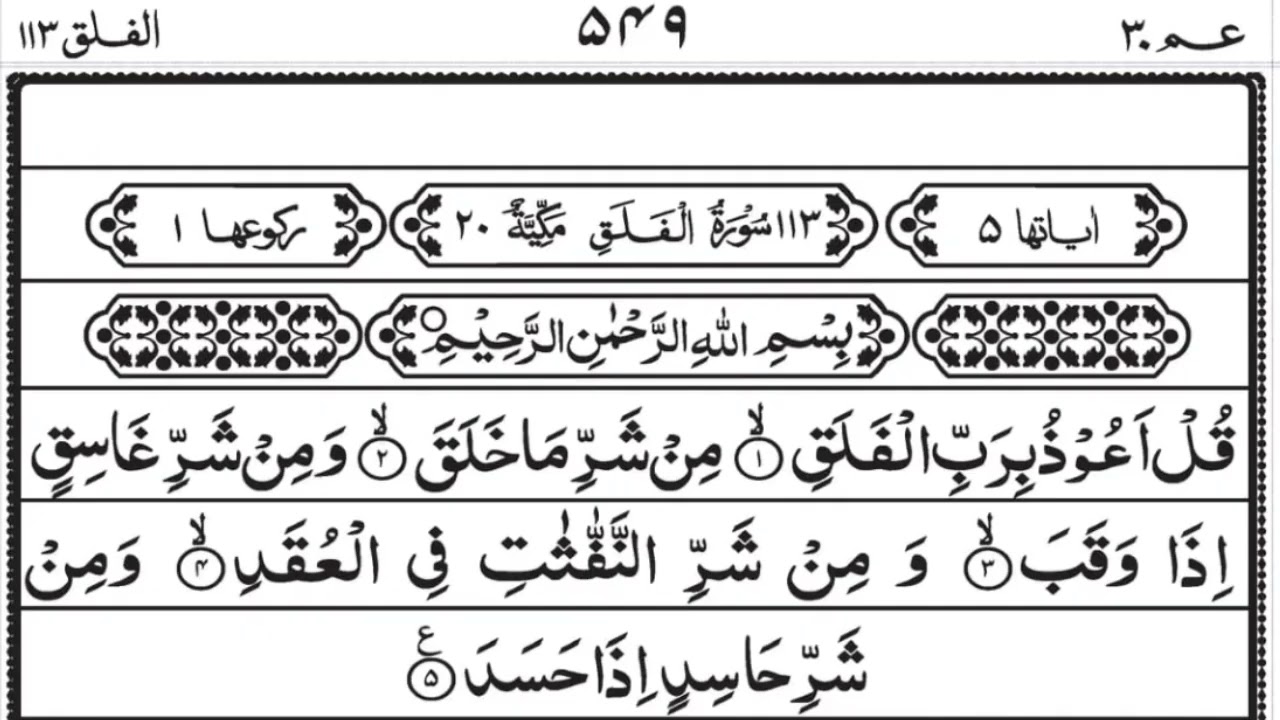 عـم ٣٠ ۵۴۹ الفلق ١١٣
اٰیاتها ۵ ١١٣ سُوْرَةُ الْفَلَقِ مَكِّيَّةٌ ٢٠ رکوعها ١
بِسْمِ اللّٰهِ الرَّحْمٰنِ الرَّحِيْمِ○
قُلْ اَعُوْذُ بِرَبِّ الْفَلَقِ ۙ﴿١﴾ مِنْ شَرِّ مَا خَلَقَ ۙ﴿٢﴾ وَمِنْ شَرِّ غَاسِقٍ
اِذَا وَقَبَ ۙ﴿٣﴾ وَ مِنْ شَرِّ النَّفّٰثٰتِ فِي الْعُقَدِ ۙ﴿۴﴾ وَمِنْ
شَرِّ حَاسِدٍ اِذَا حَسَدَ ﴿۵﴾ ع